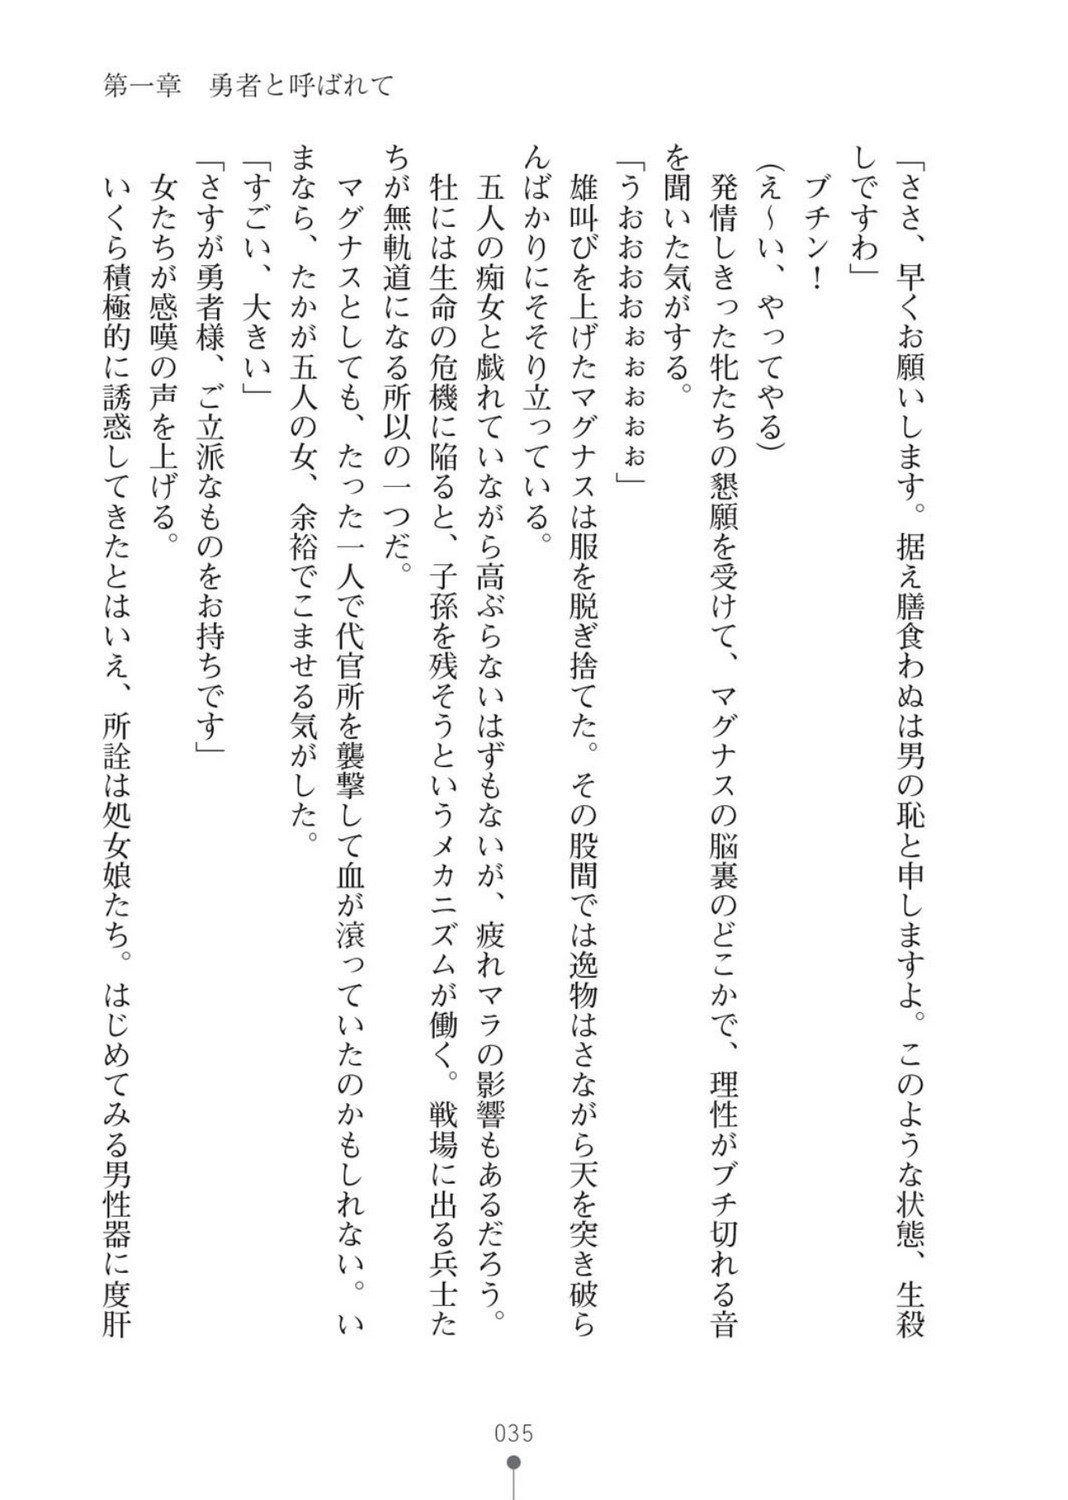 第一章　勇者と呼ばれて
「ささ、早くお願いします。据え膳食わぬは男の恥と申しますよ。このような状態、生殺
しですわ」
ブチン！
(え～い、やってやる)
発情しきった牝たちの懇願を受けて、マグナスの脳裏のどこかで、理性がブチ切れる音
を聞いた気がする。
「うおおおおぉぉぉぉぉ」
雄叫びを上げたマグナスは服を脱ぎ捨てた。その股間では逸物はさながら天を突き破ら
んばかりにそそり立っている。
五人の痴女と戯れていながら高ぶらないはずもないが、疲れマラの影響もあるだろう。
牡には生命の危機に陥ると、子孫を残そうというメカニズムが働く。戦場に出る兵士た
ちが無軌道になる所以の一つだ。
マグナスとしても、たった一人で代官所を襲撃して血が滾っていたのかもしれない。い
まなら、たかが五人の女、余裕でこませる気がした。
「すごい、大きい」
「さすが勇者様、ご立派なものをお持ちです」
女たちが感嘆の声を上げる。
いくら積極的に誘惑してきたとはいえ、所詮は処女娘たち。はじめてみる男性器に度肝
035